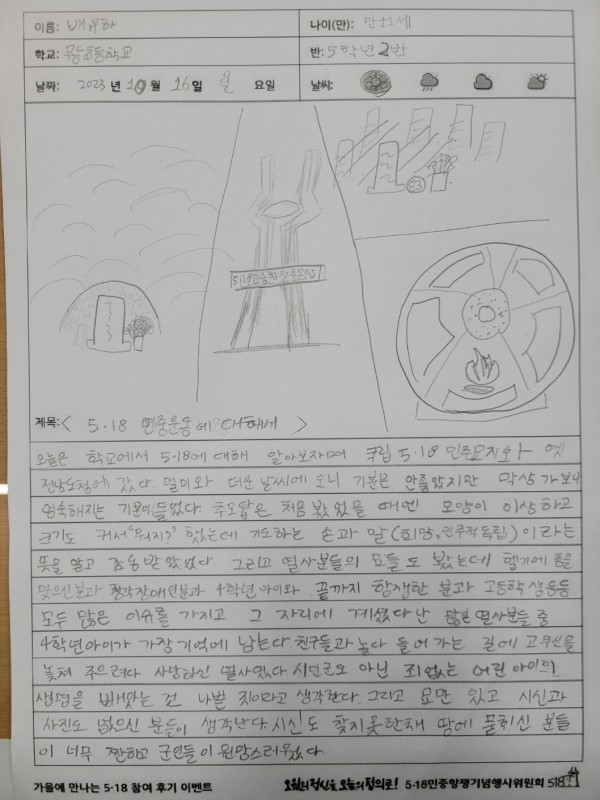 이름: 배유하 나이(만): 만 11세
학교: 무등초등학교 반: 5학년 2반
날짜: 2023 년 10 월 16 일 월 요일 날씨:
5·18민중항쟁추모탑
제목: < 5·18 민중운동에 대해서 >
오늘은 학교에서 5·18에 대해 알아보자며 국립 5·18 민주묘지와 옛
전남도청에 갔다. 멀미와 더운 날씨에 오니 기분은 안좋았지만 막상 가보니
엄숙해지는 기분이 들었다. 추모탑은 처음 봤었을 때엔 모양이 이상하고
크기도 커서 "뭐지?" 했는데 기도하는 손과 알(희망, 민주적독립)이라는
뜻을 알고 감동받았었다. 그리고 열사분들의 묘들도 봤는데 헬기에 총을
맞으신분과 청각장애인분과 4학년 아이와 끝까지 항쟁한 분과 고등학생등등
모두 많은 이유를 가지고 그 자리에 계셨다 난 많은 열사분들 중
4학년아이가 가장기억에 남는다. 친구들과 놀다 들어가는 길에 고무신을
놓쳐 주으려다 사망하신 열사였다 시민군도 아닌 죄없는 어린 아이의
생명을 빼앗는 건 나쁜 짓이라고 생각한다. 그리고 묘만 있고 시신과
사진도 없으신 분들이 생각난다. 시신도 찾지못한채 땅에 묻히신 분들
이 너무 짠하고 군인들이 원망스러웠다.
가을에 만나는 5·18 참여 후기 이벤트 오월의 정신을 오늘의 정의로! 5·18민중항쟁기념행사위원회 518